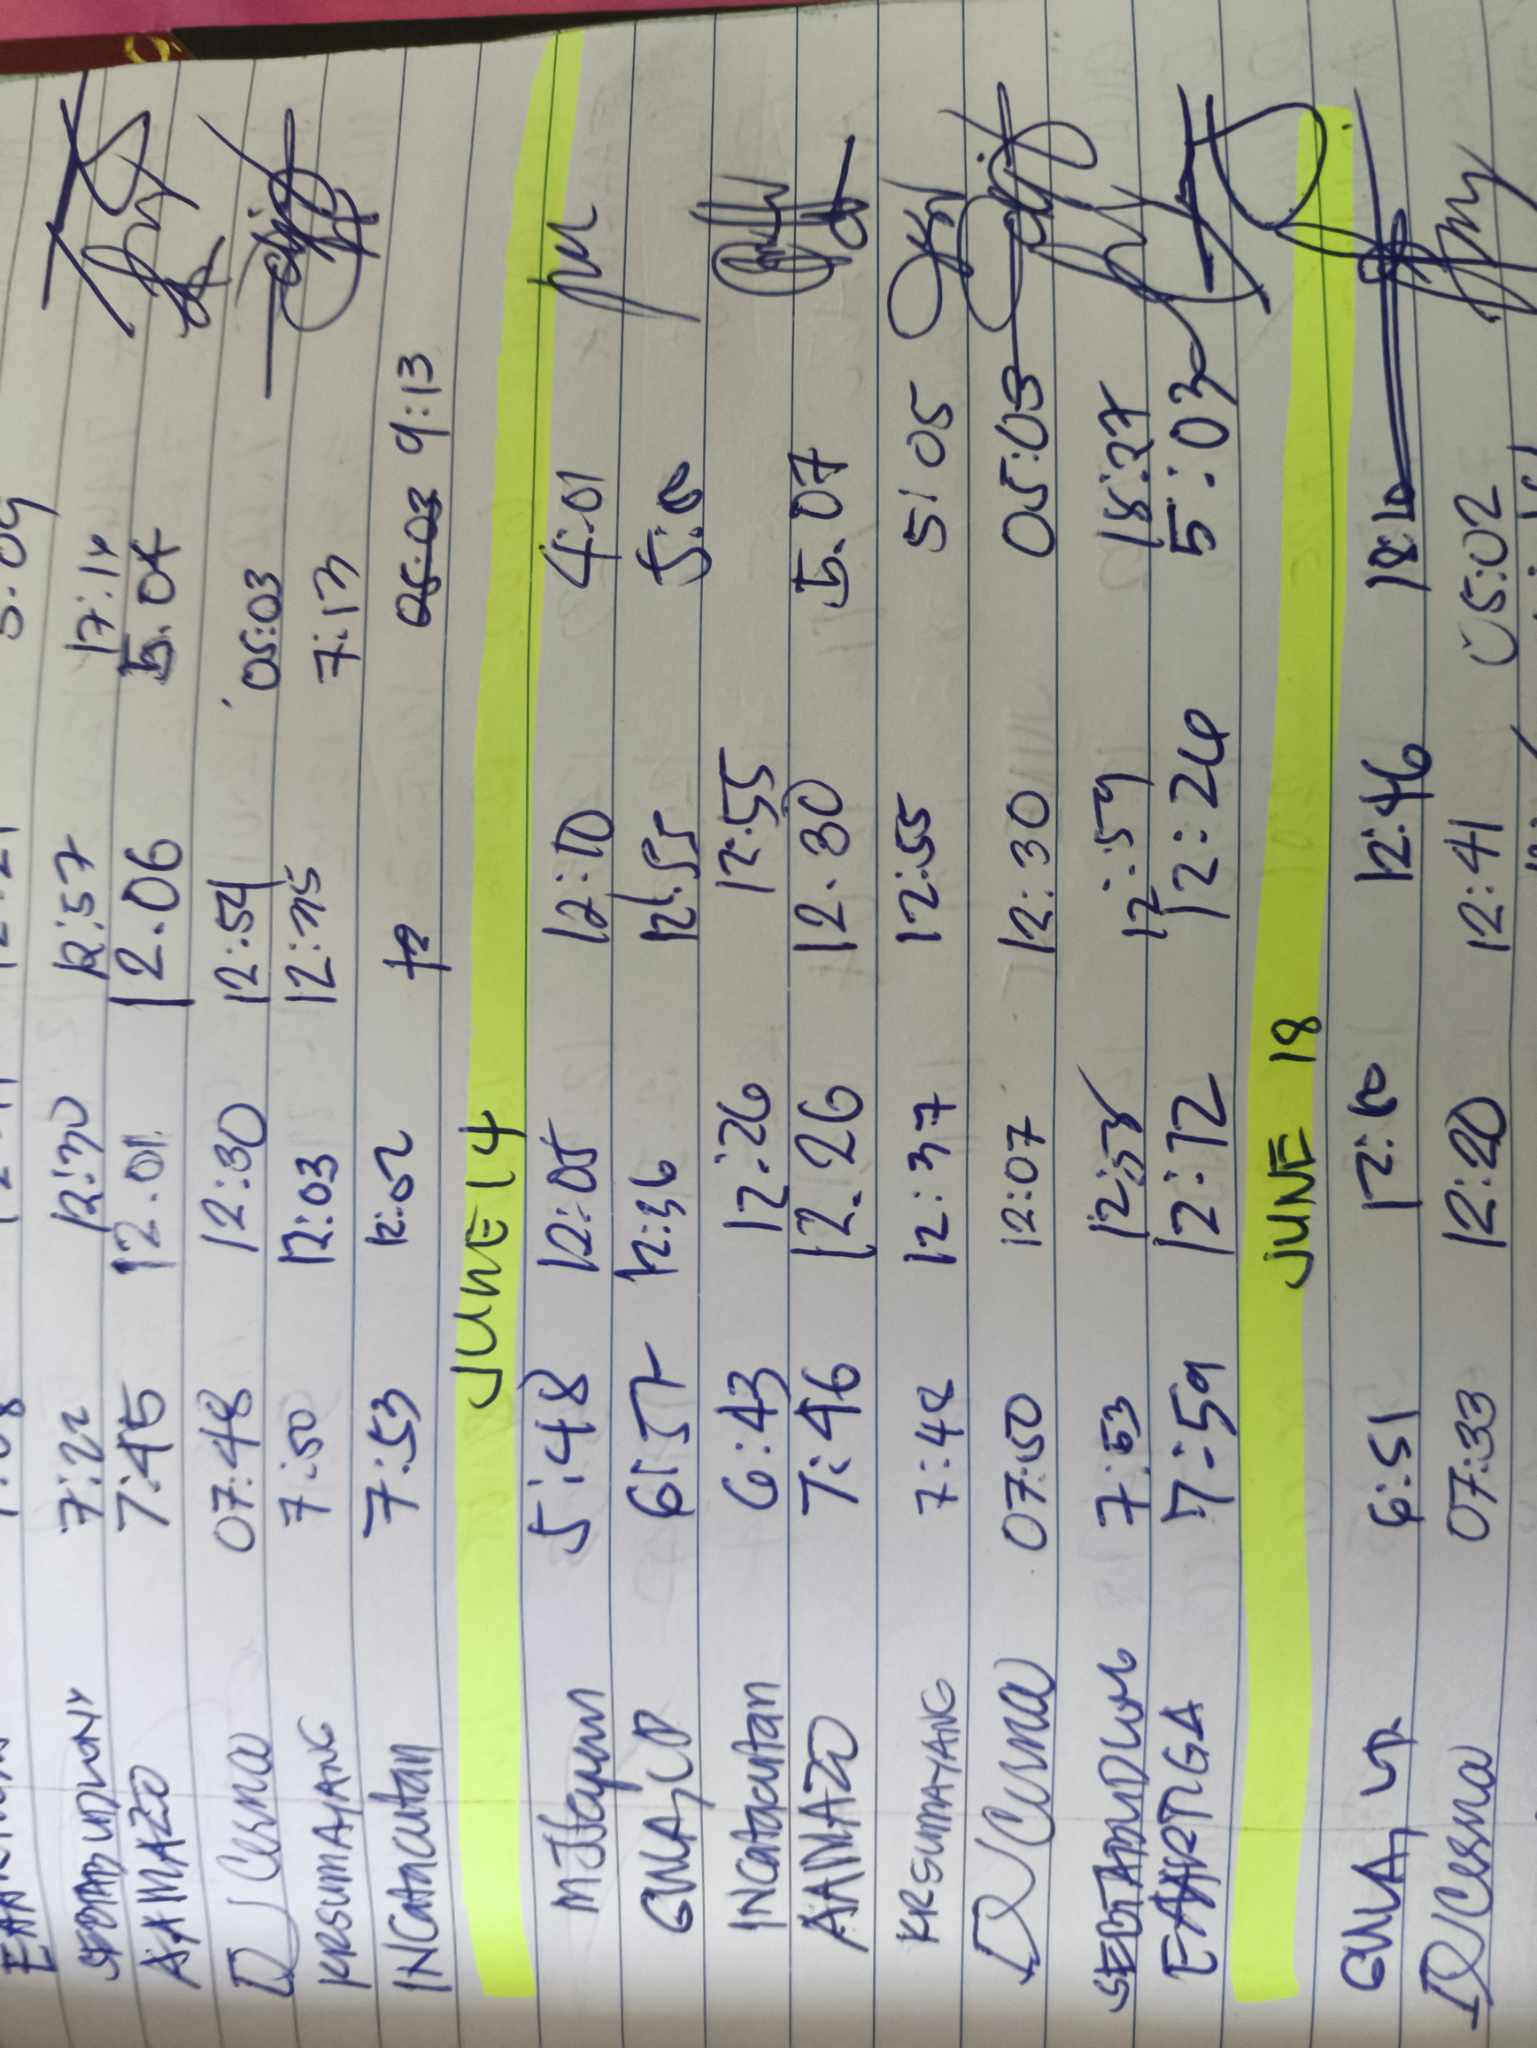 7:22 12:30 12:57 17:14
AAMAZO 7:45 12.01 12.06 5.04
DJCesna 07:48 12:30 12:54 05:03
KRSUMAYANG 7:50 12:03 12:45 7:13
INCatacutan 7:53 12:02 12 05:03 9:13
JUNE 14
5:48 12:05 12:10 4:01
12:36 12:55 5:00
INCatacutan 6:43 12:26 12:55
AAMAZO 7:46 12.26 12.30 5.07
KRSUMAYANG 7:48 12:37 12:55 5:05
DJCesna 07:50 12:07 12:30 05:03
7:53 12:53 12:59 18:37
EAARTIGA 7:59 12:12 12:26 5:03
JUNE 18
6:51 12:10 12:46
DJCesna 07:33 12:20 12:41 05:02